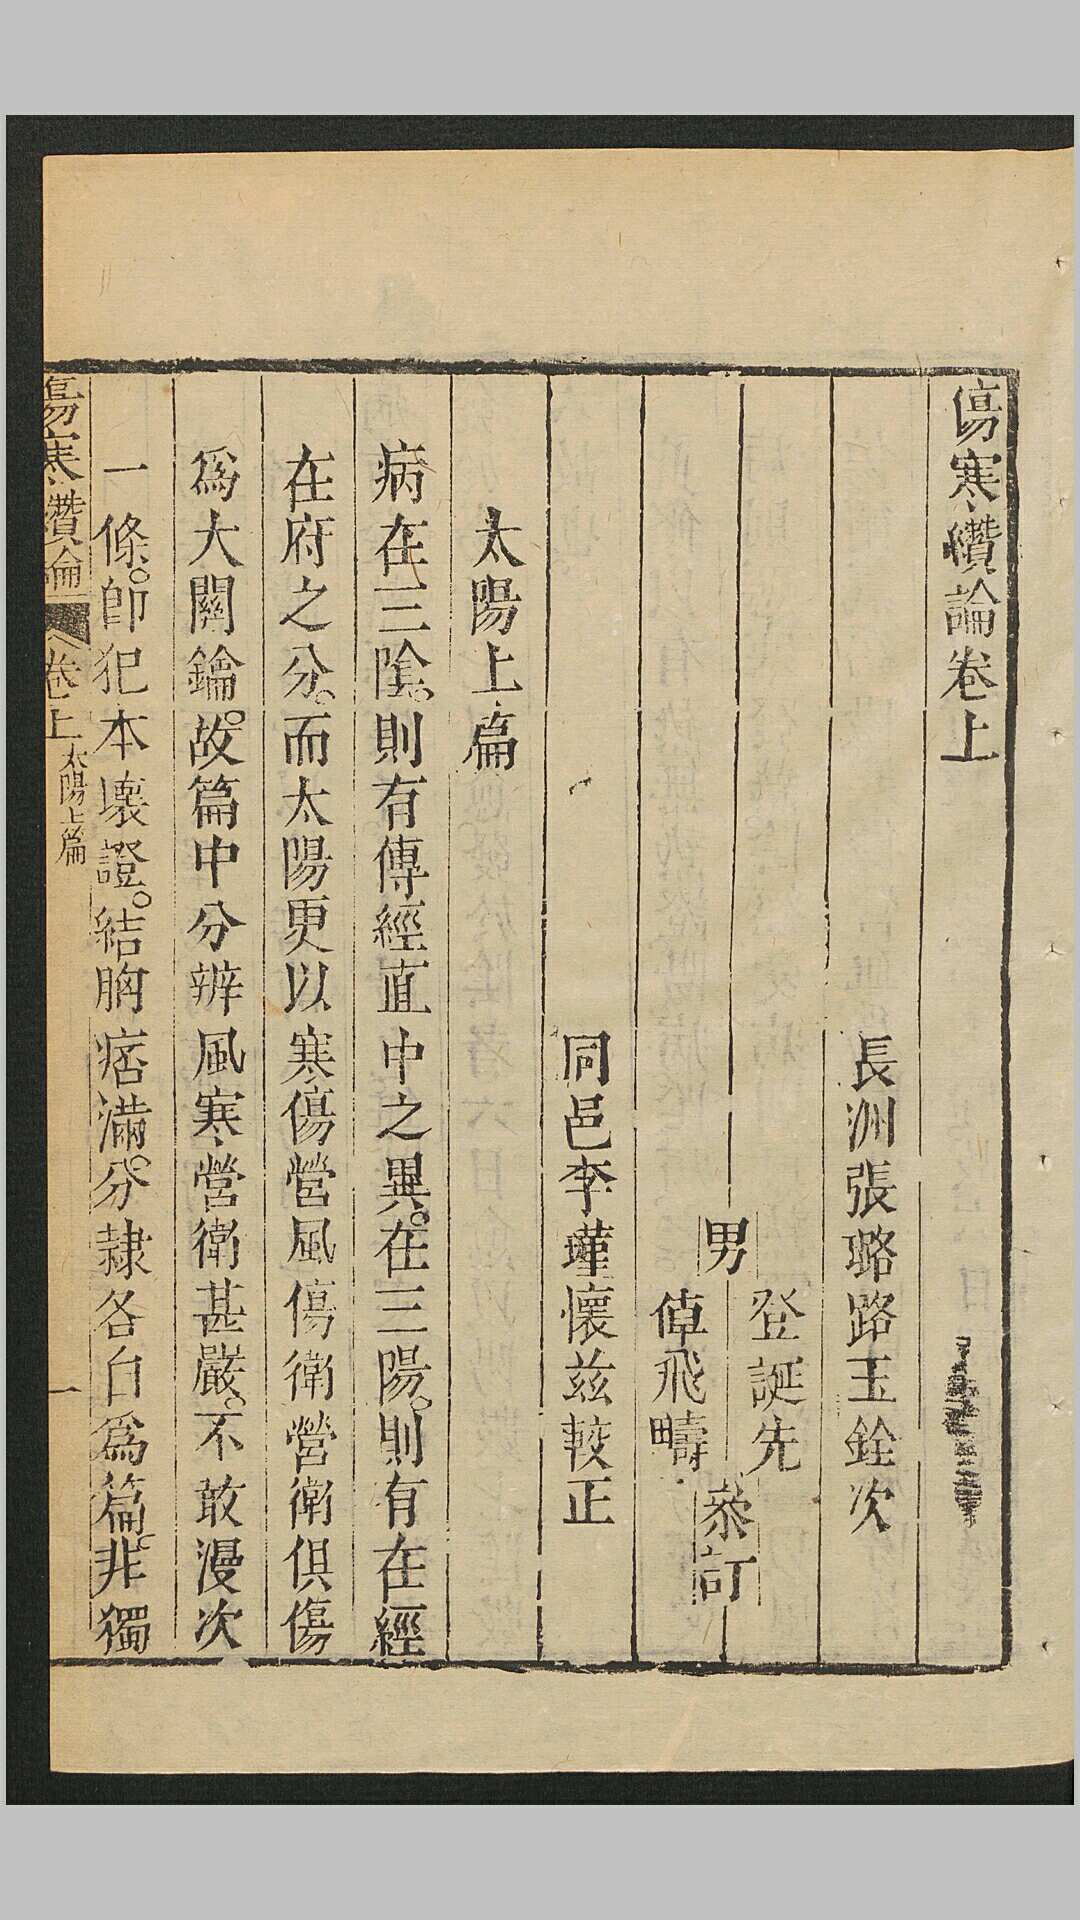 傷寒纘論卷上
長洲張璐路玉銓次
登誕先
男
倬飛疇
叅訂
同邑李瑾懷兹較正
太陽上篇
病在三陰。則有傳經直中之異。在三陽。則有在經
在府之分。而太陽更以寒傷營風傷衛營衛俱傷
爲大關鑰。故篇中分辨風寒營衛甚嚴。不敢漫次
一條。卽犯本壞證。結胸痞滿。分隷各自爲篇。非獨
傷寒纘論
卷上
太陽上篇
一